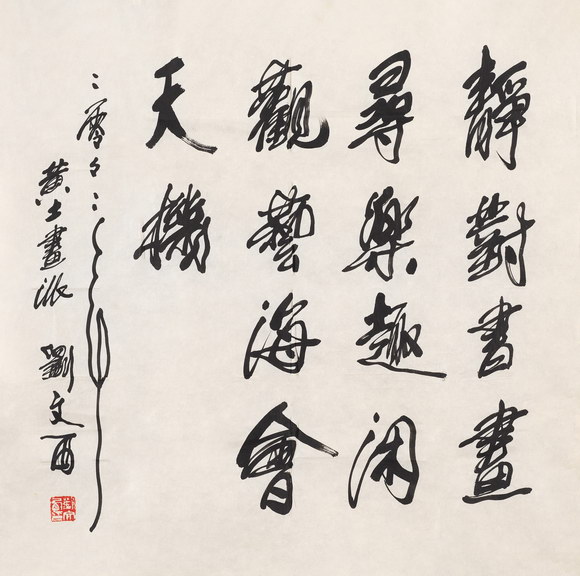 靜對書畫
尋樂趣闲
觀藝海會
天機
二零々二年
黄土畫派 劉文西